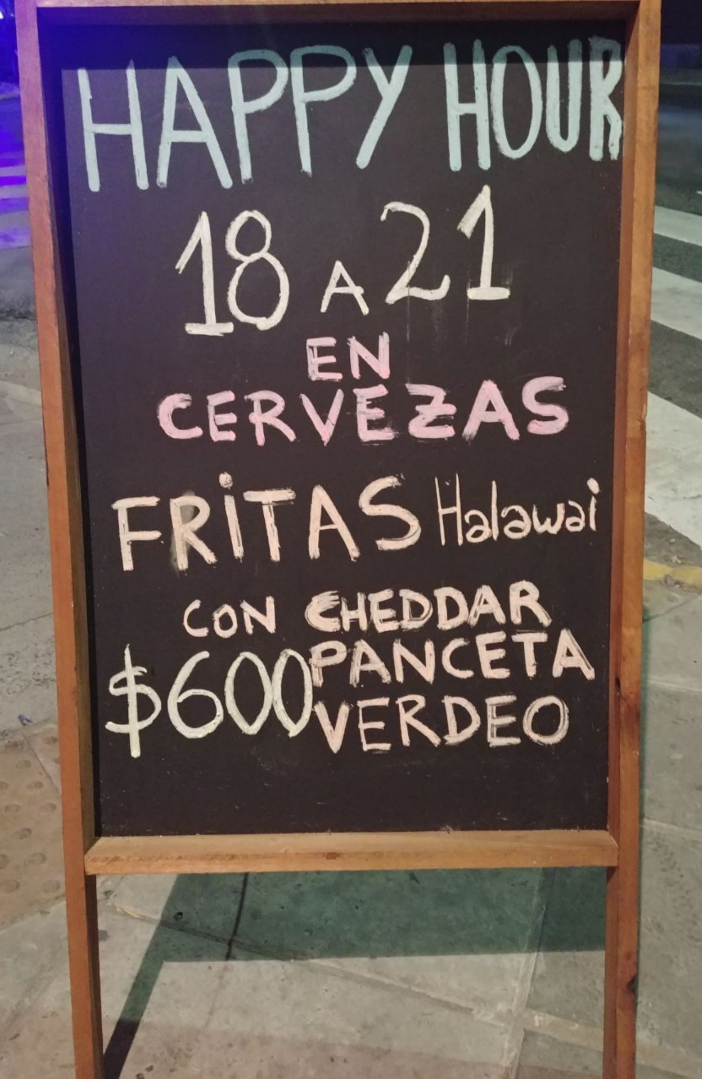 HAPPY HOUR
18 A 21
EN
CERVEZAS
FRiTAS Halawai
CON CHEDDAR
PANCETA
$600 VERDEO